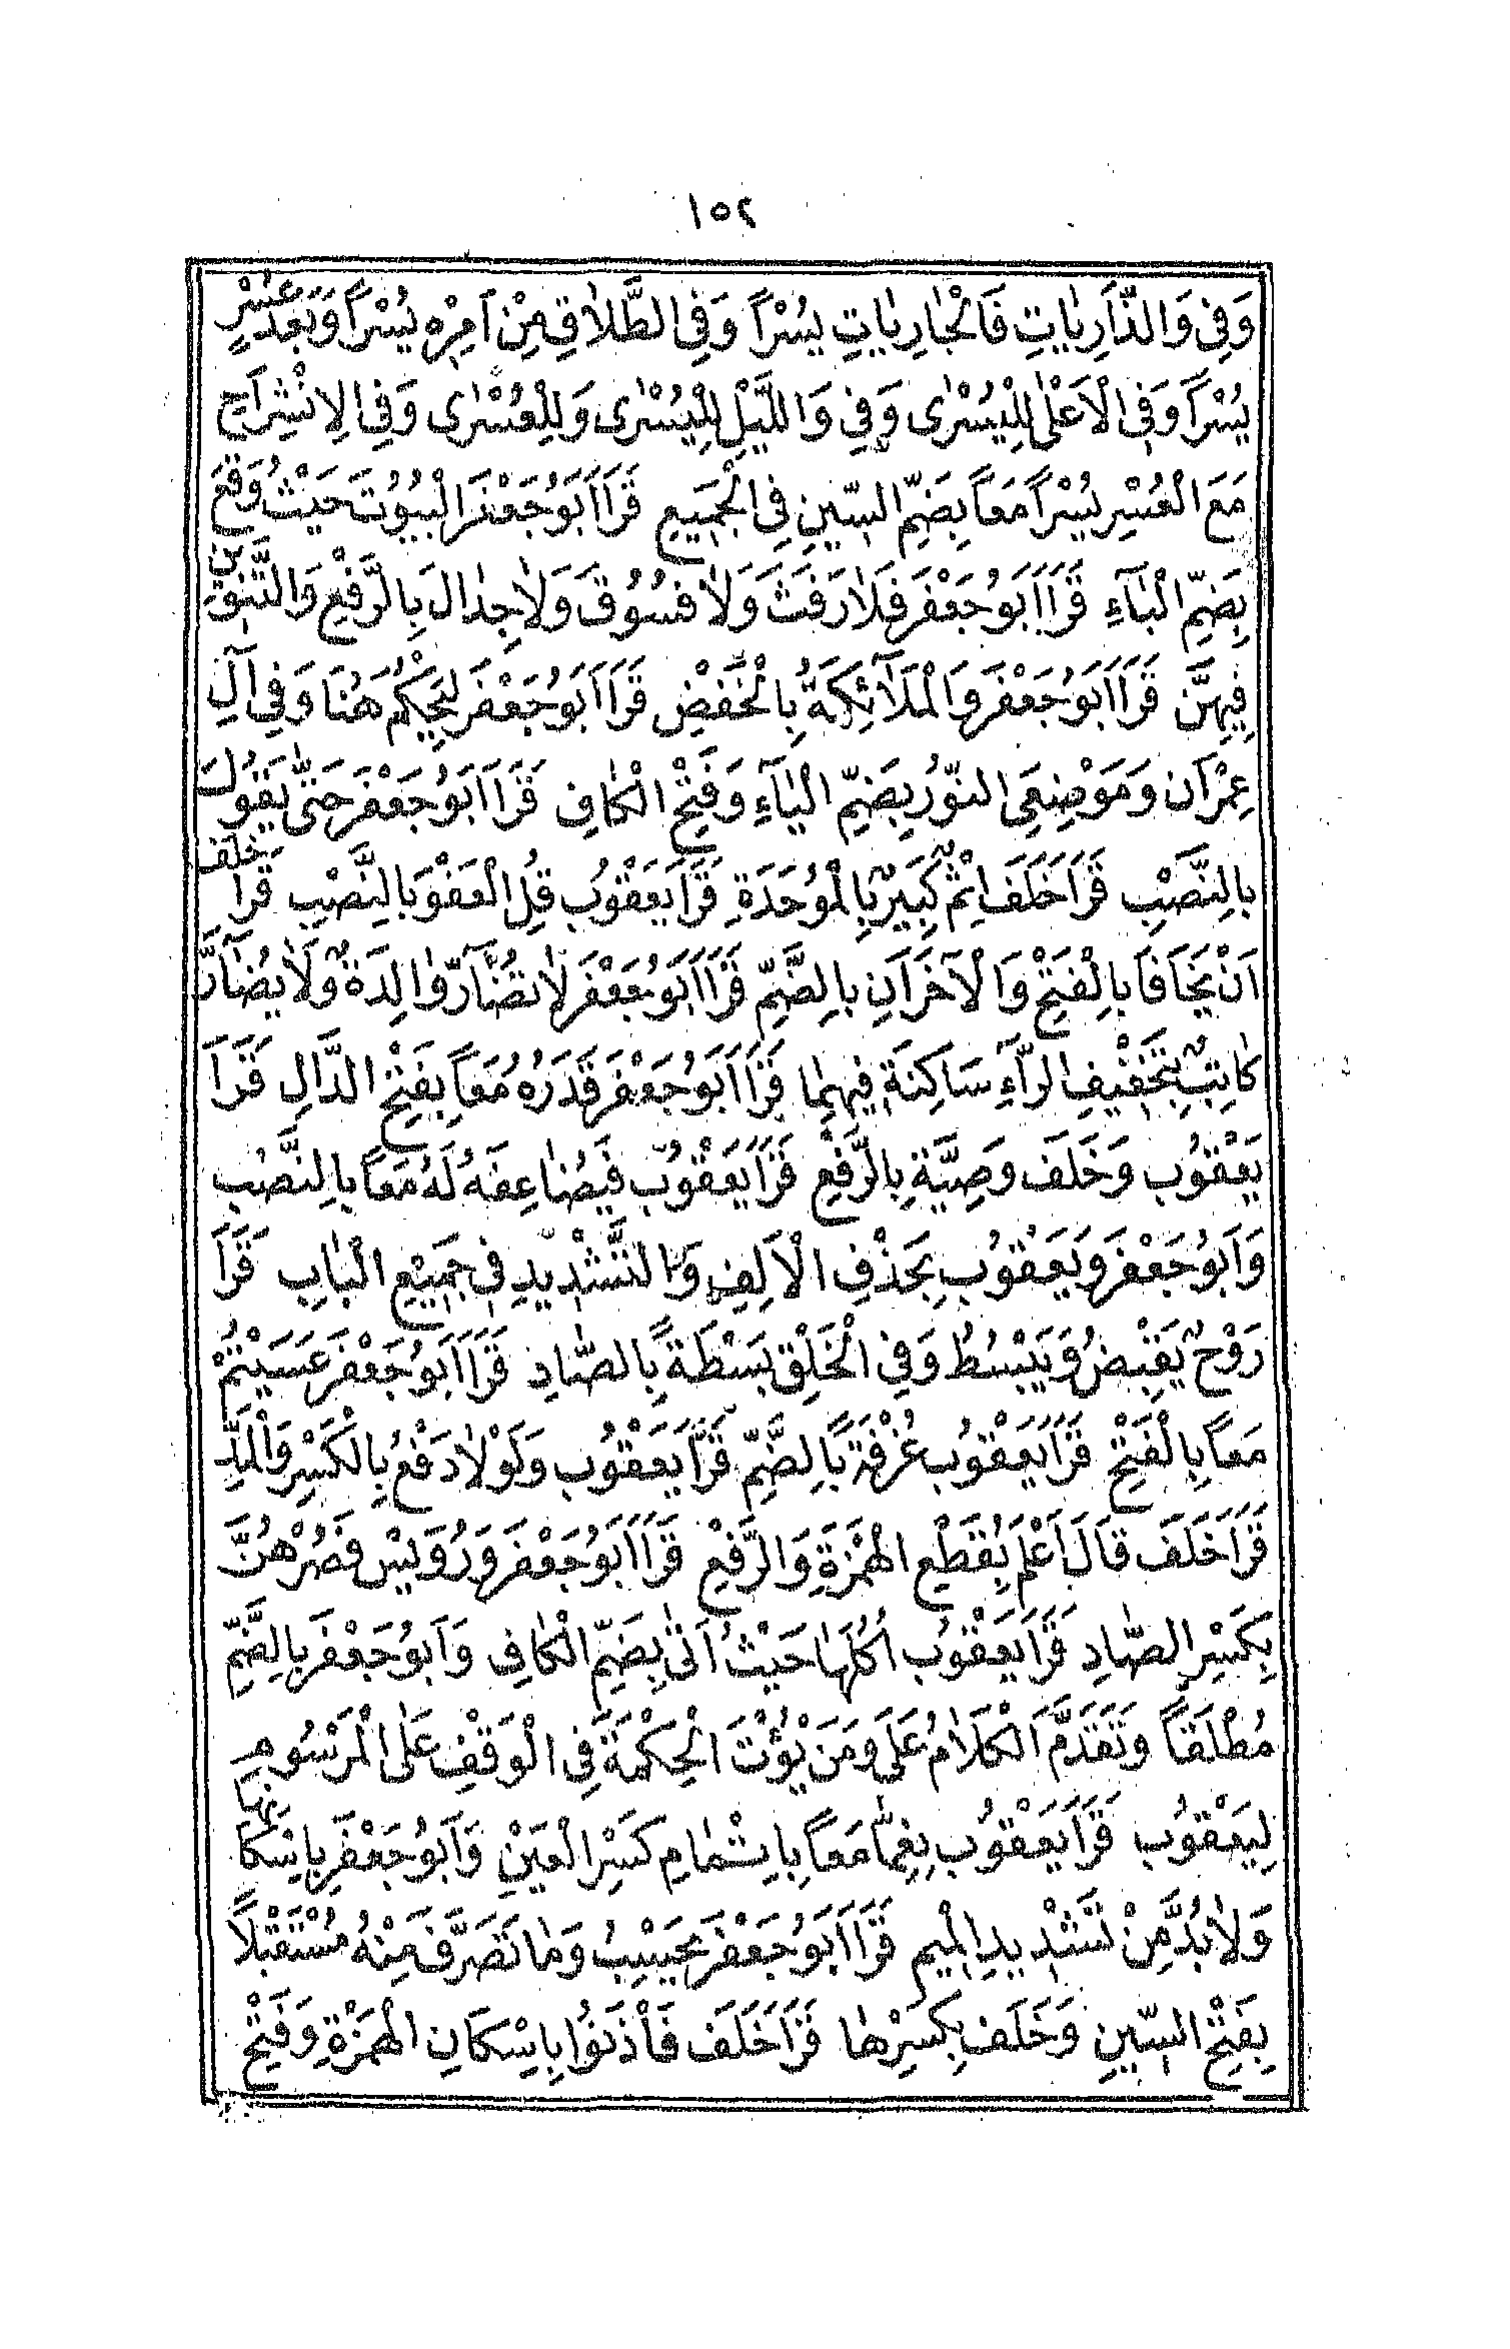 ١٥٢
وَفِي وَالذَّارِيَاتِ فَالْجَارِيَاتِ يُسْرًا وَفِي الطَّلَاقِ مِنْ اَمْرِهِ يُسْرًا وَبَعْدَ عُسْرٍ
يُسْرًا وَفِي الْاَعْلٰى لِلْيُسْرٰى وَفِي وَالَّيْلِ لِلْيُسْرٰى وَلِلْعُسْرٰى وَفِي الِانْشِرَاحِ
مَعَ الْعُسْرِ يُسْرًا مَعًا بِضَمِّ السِّينِ فِي الْجَمِيعِ قَرَاَ اَبُو جَعْفَرَ الْبُيُوتَ حَيْثُ وَقَعَ
بِضَمِّ الْبَآءِ قَرَاَ اَبُو جَعْفَرَ فَلَا رَفَثَ وَلَا فُسُوقَ وَلَا جِدَالَ بِالرَّفْعِ وَالتَّنْوِينِ
فِيهِنَّ قَرَاَ اَبُو جَعْفَرَ وَالْمَلَآئِكَةُ بِالْخَفْضِ قَرَاَ اَبُو جَعْفَرَ لِيَحْكُمَ هُنَا وَفِي اٰلِ
عِمْرَانَ وَمَوْضِعَيِ النُّورِ بِضَمِّ الْيَآءِ وَفَتْحِ الْكَافِ قَرَاَ اَبُو جَعْفَرَ حَتّٰى يَقُولَ
بِالنَّصْبِ قَرَاَ خَلَفَ اِثْمٌ كَبِيرٌ بِالْمُوَحَّدَةِ قَرَاَ يَعْقُوبُ قُلِ الْعَفْوَ بِالنَّصْبِ قَرَاَ خَلَفَ
اَنْ يَخَافَا بِالْفَتْحِ وَالْاٰخَرَانِ بِالضَّمِّ قَرَاَ اَبُو جَعْفَرَ لَا تُضَآرَّ وَالِدَةٌ وَلَا يُضَآرَّ
كَاتِبٌ بِتَخْفِيفِ الرَّآءِ سَاكِنَةً فِيهِمَا قَرَاَ اَبُو جَعْفَرَ قَدَرُهُ مَعًا بِفَتْحِ الدَّالِ قَرَاَ
يَعْقُوبُ وَخَلَفَ وَصِيَّةٌ بِالرَّفْعِ قَرَاَ يَعْقُوبُ فَيُضَاعِفَهُ لَهُ مَعًا بِالنَّصْبِ
وَاَبُو جَعْفَرَ وَيَعْقُوبُ بِحَذْفِ الْاَلِفِ وَالتَّشْدِيدِ فِي جَمِيعِ الْبَابِ قَرَاَ
رَوْحٌ يَقْبِضُ وَيَبْسُطُ وَفِي الْخَلْقِ بَسْطَةً بِالصَّادِ قَرَاَ اَبُو جَعْفَرَ عَسَيْتُمْ
مَعًا بِالْفَتْحِ قَرَاَ يَعْقُوبُ غُرْفَةً بِالضَّمِّ قَرَاَ يَعْقُوبُ وَلَوْلَا دَفْعُ بِالْكَسْرِ وَالْمَدِّ
قَرَاَ خَلَفَ قَالَ اَعْلَمُ بِقَطْعِ الْهَمْزَةِ وَالرَّفْعِ قَرَاَ اَبُو جَعْفَرَ وَرُوَيْسَ فَصُرْهُنَّ
بِكَسْرِ الصَّادِ قَرَاَ يَعْقُوبُ اُكُلَهَا حَيْثُ اَتٰى بِضَمِّ الْكَافِ وَاَبُو جَعْفَرَ بِالضَّمِّ
مُطْلَقًا وَتَقَدَّمَ الْكَلَامُ عَلَى وَمَنْ يُؤْتَ الْحِكْمَةَ فِي الْوَقْفِ عَلَى الْمَرْسُومِ
لِيَعْقُوبَ قَرَاَ يَعْقُوبُ نِعِمَّا مَعًا بِاِتْمَامِ كَسْرِ الْعَيْنِ وَاَبُو جَعْفَرَ بِاِسْكَانِهَا
وَلَا بُدَّ مِنْ تَشْدِيدِ الْمِيمِ قَرَاَ اَبُو جَعْفَرَ يَحْسَبُ وَمَا تَصَرَّفَ مِنْهُ مُسْتَقْبَلًا
بِفَتْحِ السِّينِ وَخَلَفَ بِكَسْرِهَا قَرَاَ خَلَفَ فَأْذَنُوا بِاِسْكَانِ الْهَمْزَةِ وَفَتْحِ